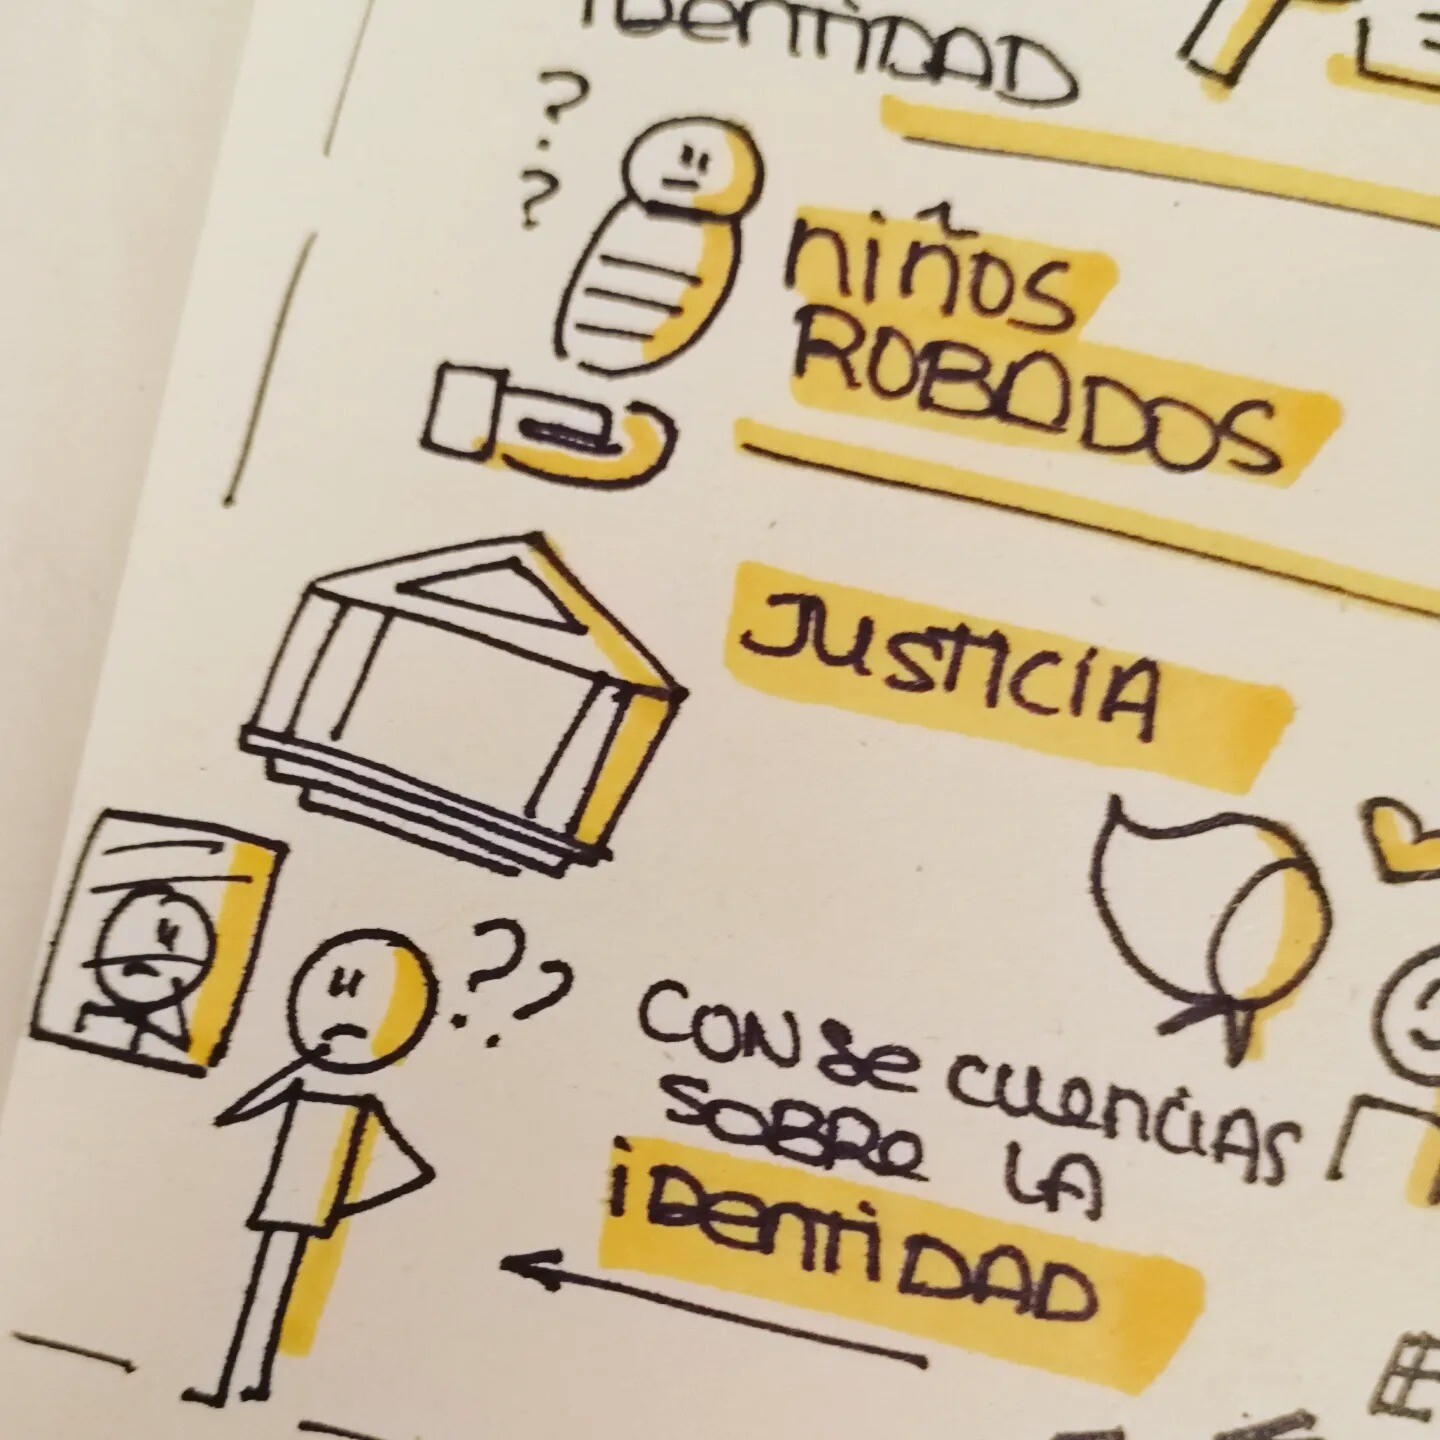 iDentiDAD
? 
?
niños
ROBADOS
JUSTICIA
??
CONSeCUenCiAS
SOBRe LA
iDentiDAD